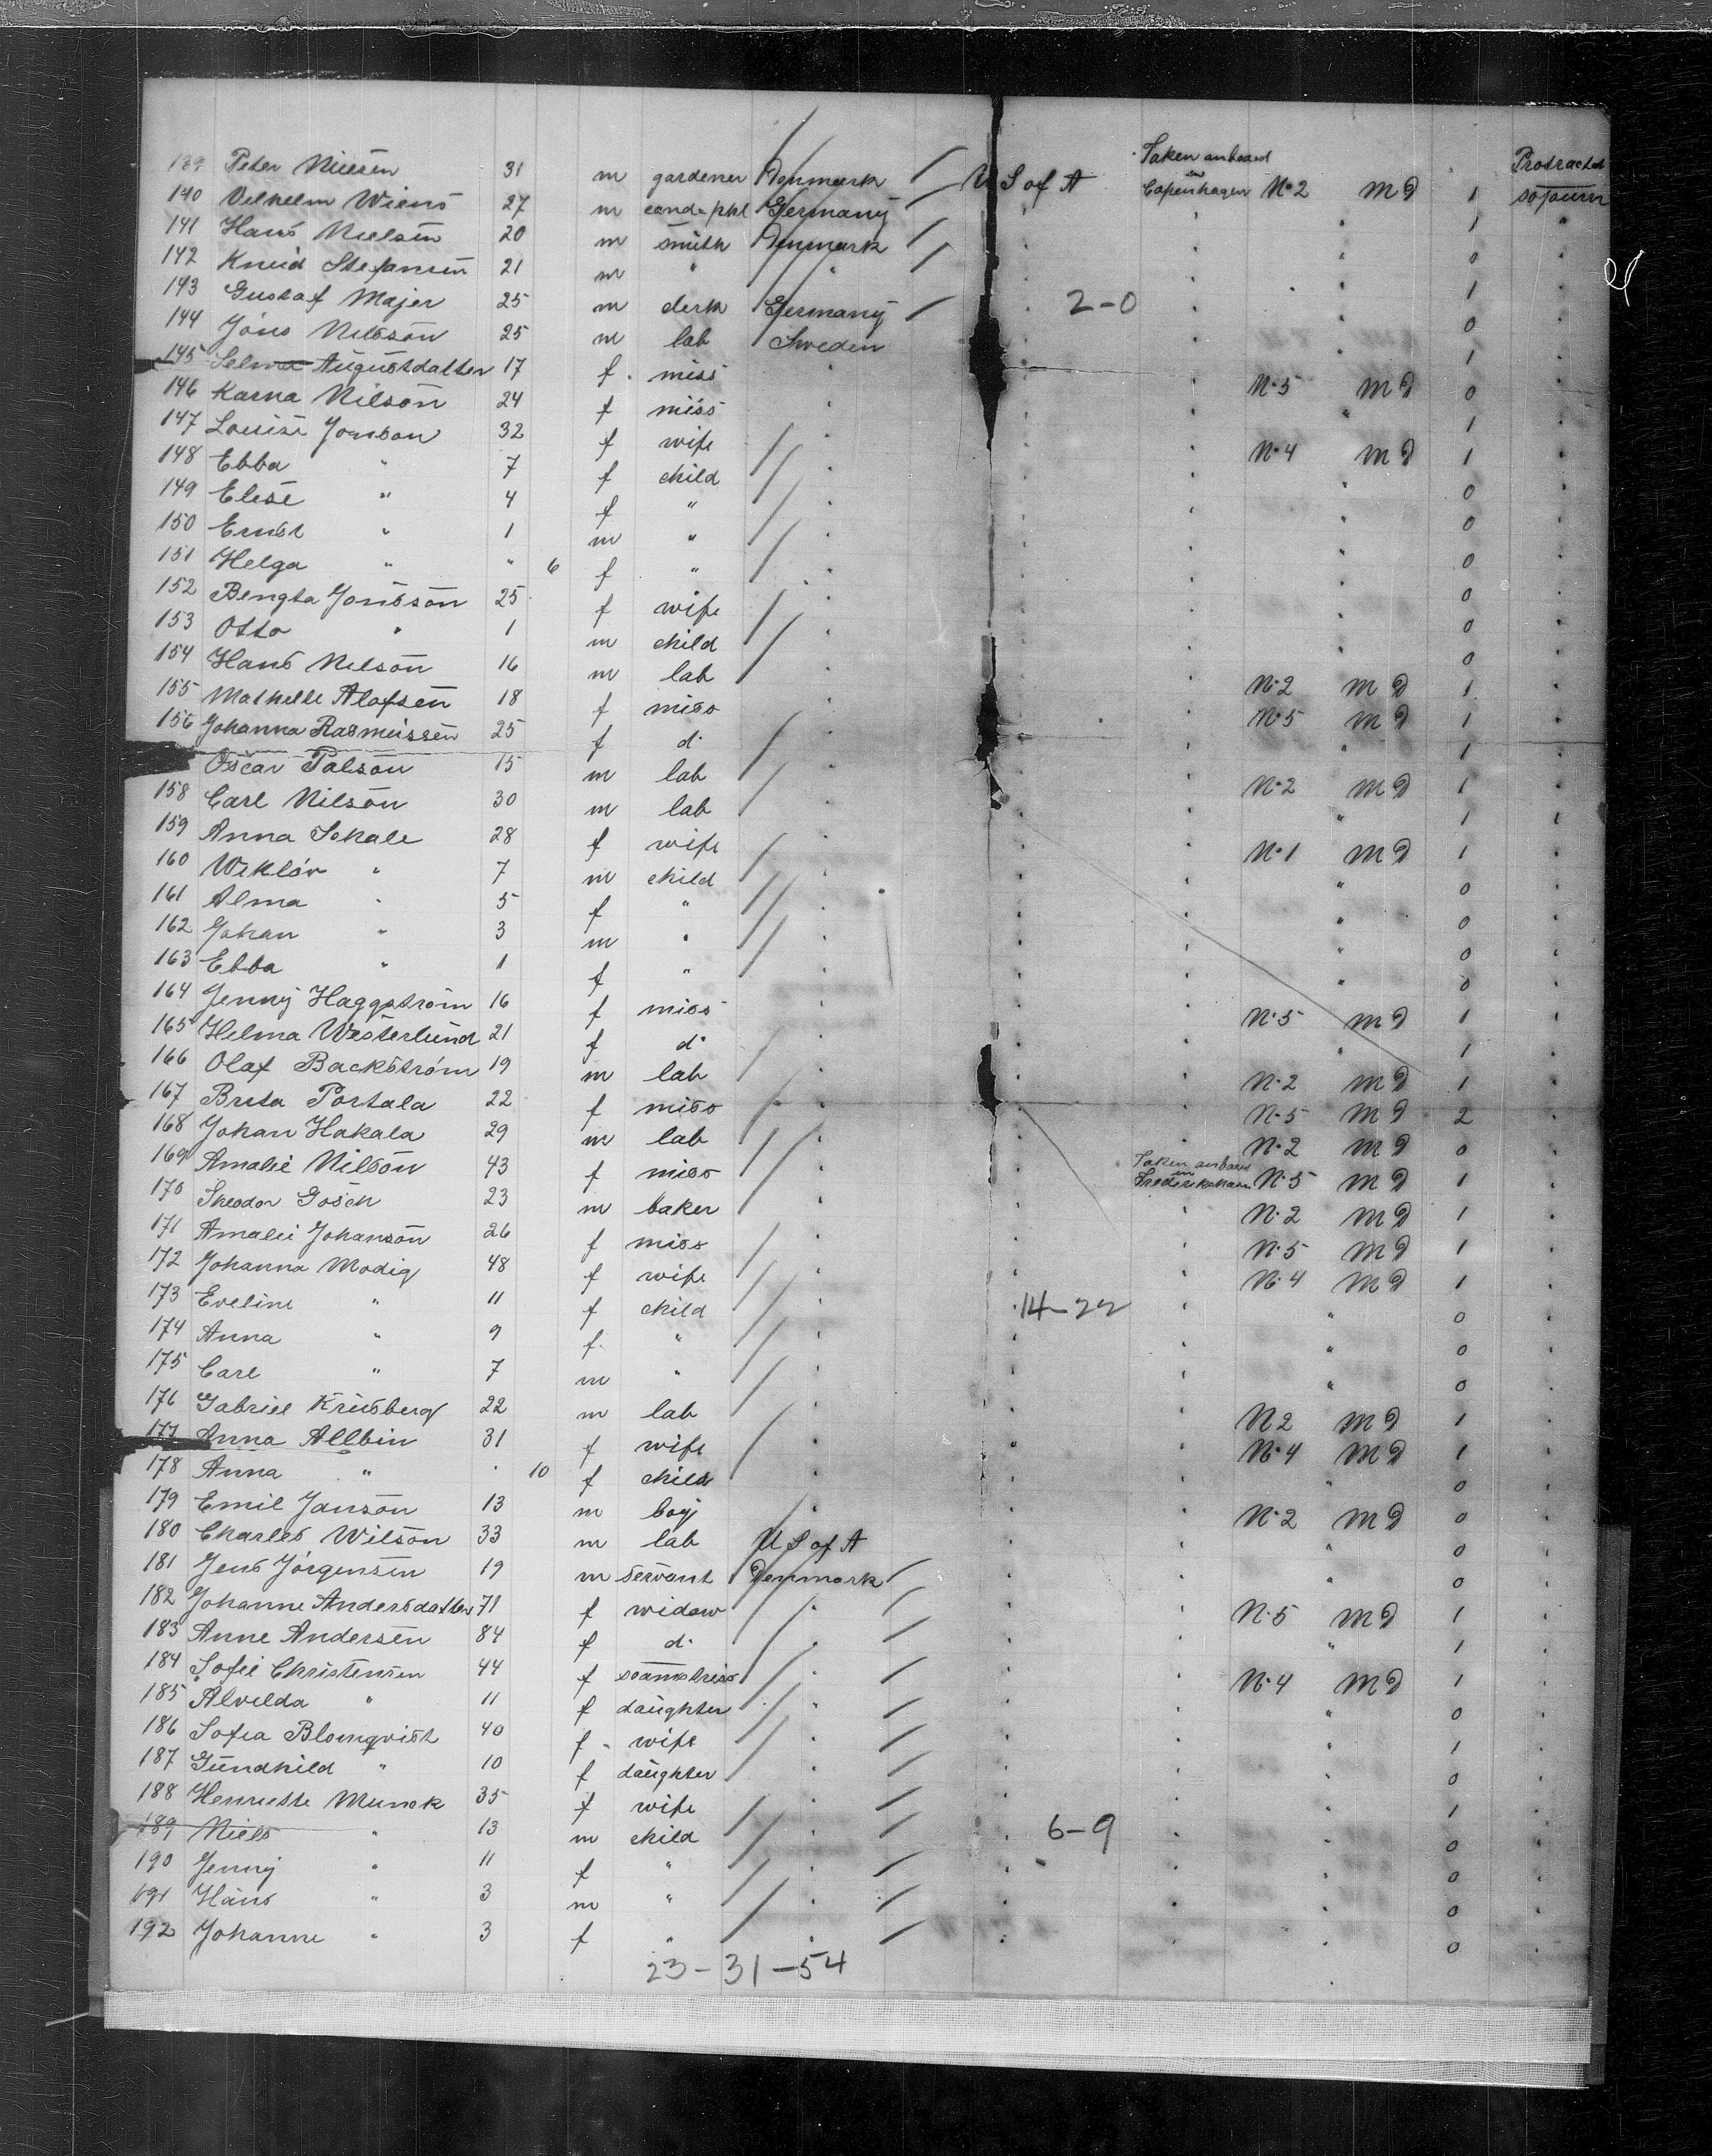 Taken onboard Protracted
139 Peter Nielsen 31 m gardener Denmark U S of A in Copenhagen No 2 M D 1 sojourn
140 Vilhelm Wiens 27 m cand. phil Germany " " 1 "
141 Hans Nielsen 20 m smith Denmark " " 0 "
142 Knud Stefansen 21 m " " " " 1 "
143 Gustaf Majer 25 m clerk Germany 2-0 " 0 "
144 Jöns Nilsson 25 m lab Sweden " " 1 "
145 Selma Augustdatter 17 f miss " " No 5 M D 0 "
146 Karna Nilson 24 f miss " " " 1 "
147 Louise Jonsson 32 f wife " " No 4 M D 1 "
148 Ebba " 7 f child " " " 0 "
149 Elise " 4 f " " " " 0 "
150 Ernst " 1 m " " " " 0 "
151 Helga " " 6 f " " " " 0 "
152 Bengta Jonsson 25 f wife " " " 0 "
153 Otto " 1 m child " " " 0 "
154 Hans Nelson 16 m lab " " No 2 M D 1 "
155 Mathilde Alofsen 18 f miss " " No 5 M D 1 "
156 Johanna Rasmussen 25 f do " " " 1 "
Oscar Palson 15 m lab " " No 2 M D 1 "
158 Carl Nilson 30 m lab " " " 1 "
159 Anna Sohale 28 f wife " " No 1 M D 1 "
160 Wiklör " 7 m child " " " 0 "
161 Alma " 5 f " " " " 0 "
162 Johan " 3 m " " " " 0 "
163 Ebba " 1 f " " " " 0 "
164 Jenny Haggström 16 f miss " " No 5 M D 1 "
165 Hilma Westerlund 21 f do " " " 1 "
166 Olaf Backström 19 m lab " " No 2 M D 1 "
167 Brita Portala 22 f miss " " No 5 M D 2 "
168 Johan Hakala 29 m lab " " No 2 M D 0 "
169 Amalie Nilson 43 f miss " Taken onboard in Frederikshavn No 5 M D 1 "
170 Theodor Gosch 23 m baker " " No 2 M D 1 "
171 Amalie Johanson 26 f miss " " No 5 M D 1 "
172 Johanna Modig 48 f wife " " No 4 M D 1 "
173 Eveline " 11 f child " 14-22 " " 0 "
174 Anna " 9 f " " " " 0 "
175 Carl " 7 m " " " " 0 "
176 Gabriel Krusberg 22 m lab " " N 2 M D 1 "
177 Anna Allbin 31 f wife " " No 4 M D 1 "
178 Anna " " 10 f child " " " 0 "
179 Emil Janson 13 m boy " " No 2 M D 0 "
180 Charles Wilson 33 m lab U S of A " " 0 "
181 Jens Jörgensen 19 m servant Denmark " " 0 "
182 Johanne Andersdatter 71 f widow " " No 5 M D 1 "
183 Anne Andersen 84 f do " " " 1 "
184 Sofie Christensen 44 f seamstress " " No 4 M D 1 "
185 Alvilda " 11 f daughter " " " 0 "
186 Sofia Blomqvist 40 f wife " " " 1 "
187 Gundhild " 10 f daughter " " " 0 "
188 Henriette Munck 35 f wife " " " 1 "
189 Niels " 13 m child " 6-9 " " 0 "
190 Jenny " 11 f " " " " 0 "
191 Hans " 3 m " " " " 0 "
192 Johanne " 3 f " " " " 0 "
23-31-54